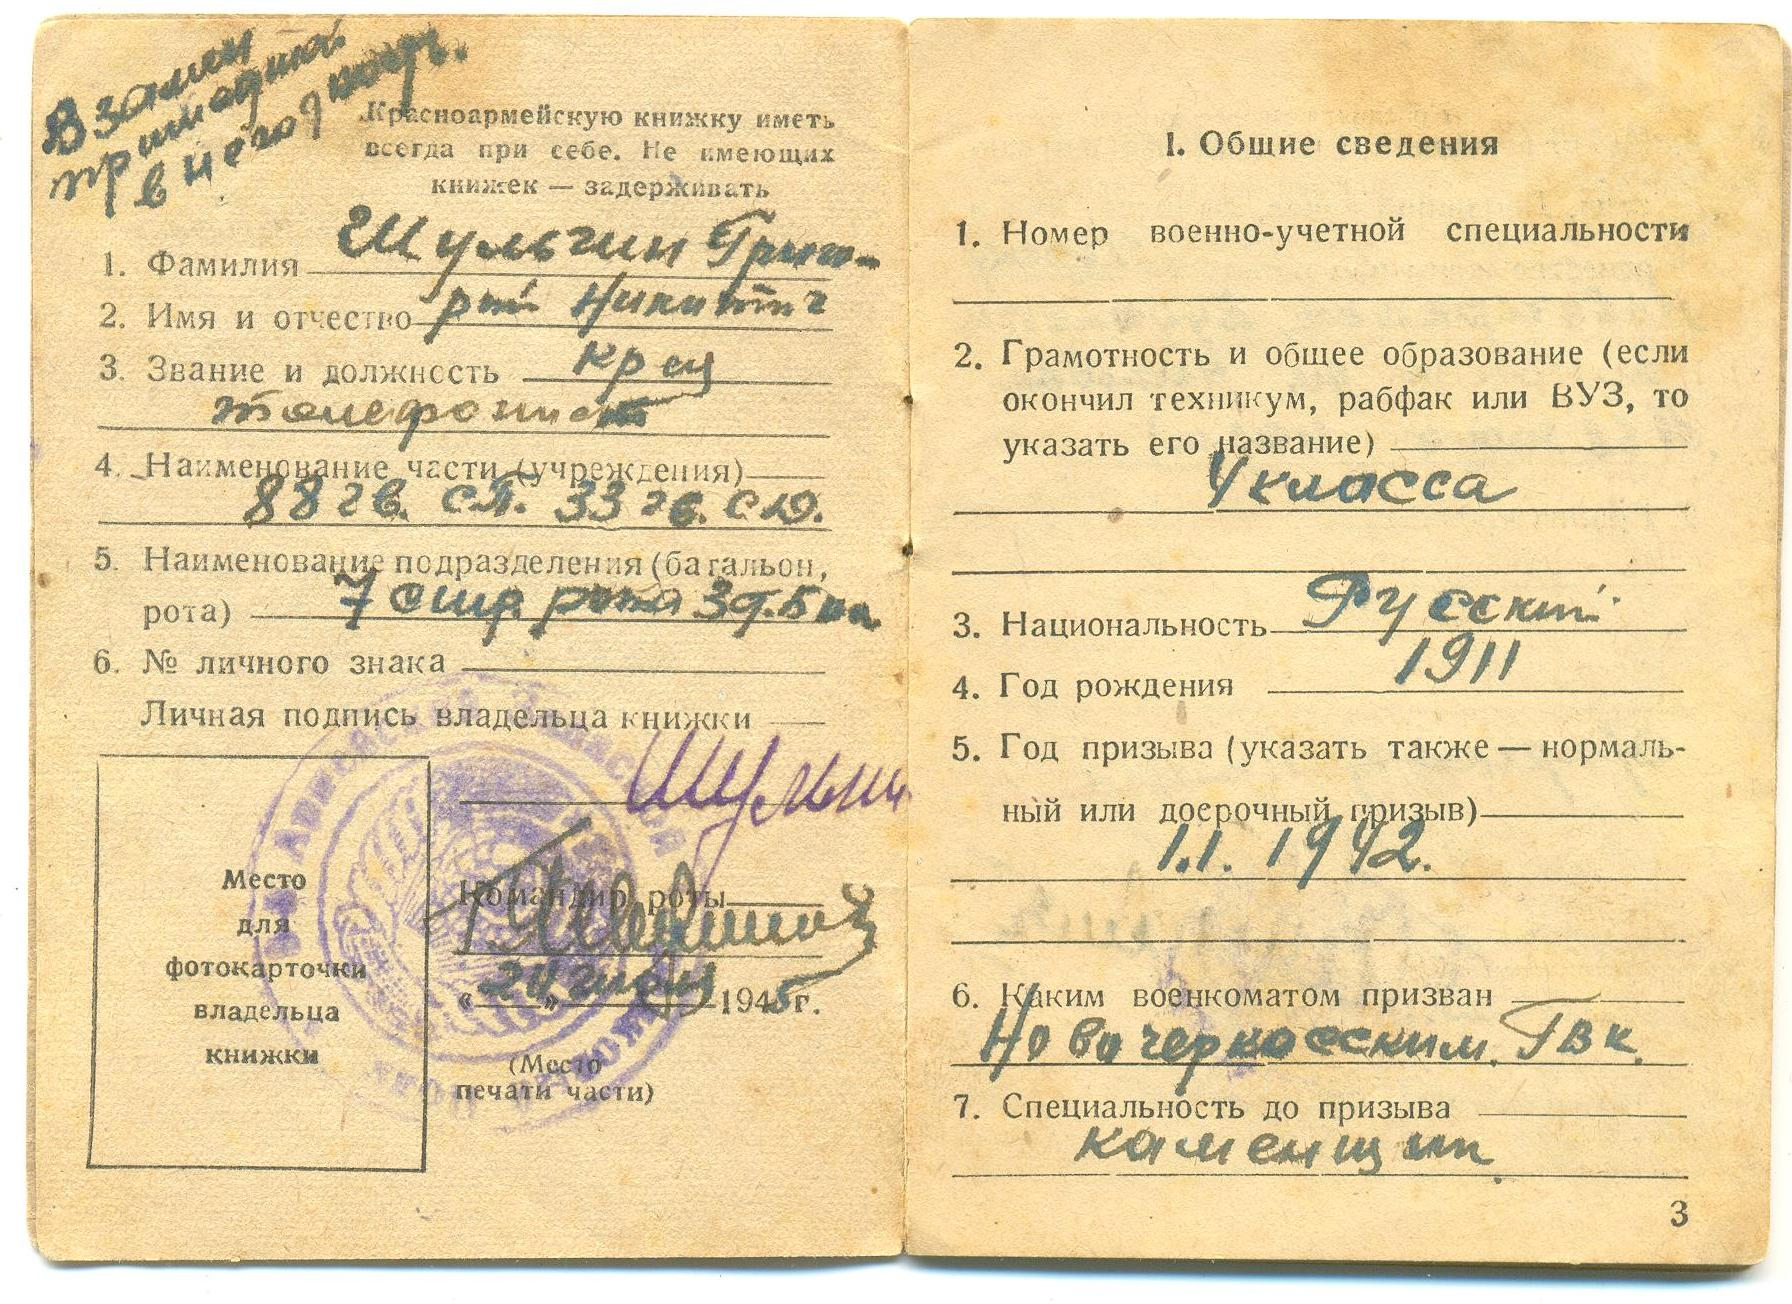 Взамен
пришедшей
в негодность.
Красноармейскую книжку иметь
всегда при себе. Не имеющих
книжек — задерживать
1. Фамилия Шульгин Григо-
2. Имя и отчество рий Никитич
3. Звание и должность кр-ец
телефонист
4. Наименование части (учреждения)
88 гв. сп. 33 гв. сд.
5. Наименование подразделения (батальон,
рота) 7 стр рота 3 стр. б-на
6. № личного знака
Личная подпись владельца книжки
Шульгин
Место
для
фотокарточки
владельца
книжки
Командир роты
„ “ 1945 г.
(Место
печати части)
I. Общие сведения
1. Номер военно-учетной специальности
2. Грамотность и общее образование (если
окончил техникум, рабфак или ВУЗ, то
указать его название)
4 класса
3. Национальность Русский
4. Год рождения 1911
5. Год призыва (указать также — нормаль-
ный или досрочный призыв)
1.1. 1942.
6. Каким военкоматом призван
Новочеркасским ГВК.
7. Специальность до призыва
каменщик
3